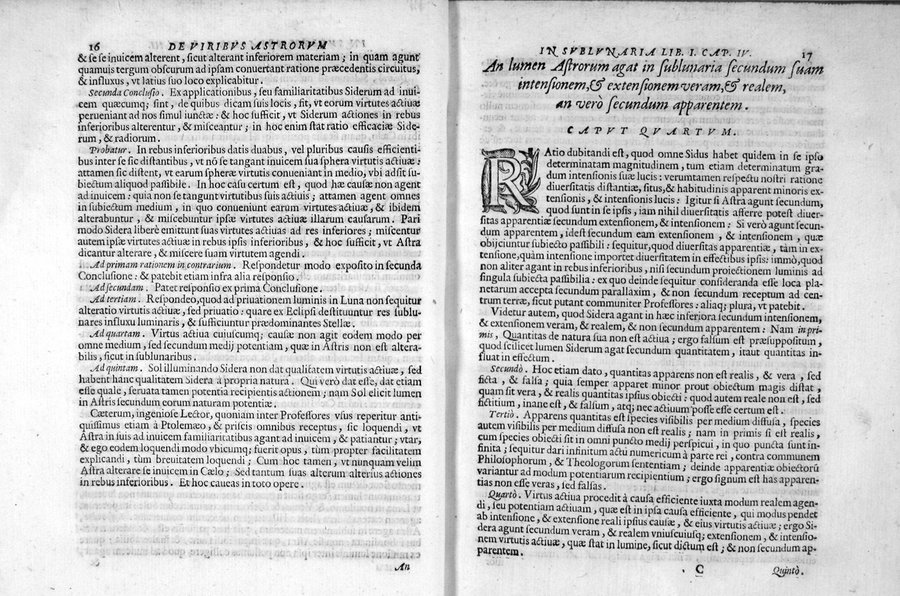 16 DE VIRIBVS ASTRORVM
& se se inuicem alterent, sicut alterant inferiorem materiam; in quam agunt
quamuis tergum obscurum ad ipsam conuertant ratione præcedentis circuitus,
& influxus, vt latius suo loco explicabitur.
Secunda Conclusio. Ex applicationibus, seu familiaritatibus Siderum ad inui-
cem quæcumq; sint, de quibus dicam suis locis, fit, vt eorum virtutes actiuæ
perueniant ad nos simul iunctæ: & hoc sufficit, vt Siderum actiones in rebus
inferioribus alterentur, & misceantur; in hoc enim stat ratio efficaciæ Side-
rum, & radiorum.
Probatur. In rebus inferioribus datis duabus, vel pluribus causis efficienti-
bus inter se sic distantibus, vt nõ se tangant inuicem sua sphera virtutis actiuæ:
attamen sic distent, vt earum spheræ virtutis conueniant in medio, vbi adsit su-
biectum aliquod passibile. In hoc casu certum est, quod hæ causæ non agent
ad inuicem: quia non se tangunt virtutibus suis actiuis; attamen agent omnes
in subiectum medium, in quo conueniunt earum virtutes actiuæ, & ibidem
alterabuntur, & miscebuntur ipsæ virtutes actiuæ illarum causarum. Pari
modo Sidera liberè emittunt suas virtutes actiuas ad res inferiores; miscentur
autem ipsæ virtutes actiuæ in rebus ipsis inferioribus, & hoc sufficit, vt Astra
dicantur alterare, & miscere suam virtutem agendi.
Ad primam rationem in contrarium. Respondetur modo exposito in secunda
Conclusione: & patebit etiam infra alia responsio.
Ad secundam. Patet responsio ex prima Conclusione.
Ad tertiam. Respondeo, quod ad priuationem luminis in Luna non sequitur
alteratio virtutis actiuæ, sed priuatio: quare ex Eclipsi destituuntur res sublu-
nares influxu luminaris, & sufficiuntur prædominantes Stellæ.
Ad quartam. Virtus actiua cuiuscumq; causæ non agit eodem modo per
omne medium, sed secundum medij potentiam, quæ in Astris non est altera-
bilis, sicut in sublunaribus.
Ad quintam. Sol illuminando Sidera non dat qualitatem virtutis actiuæ, sed
habent hanc qualitatem Sidera à propria natura. Qui verò dat esse, dat etiam
esse quale, seruata tamen potentia recipientis actionem; nam Sol elicit lumen
in Astris secundum eorum naturam potentiæ.
Cæterum, ingeniose Lector, quoniam inter Professores vsus reperitur anti-
quissimus etiam à Ptolemæo, & priscis omnibus receptus, sic loquendi, vt
Astra in suis ad inuicem familiaritatibus agant ad inuicem, & patiantur; vtar,
& ego eodem loquendi modo vbicumq; fuerit opus, tùm propter facilitatem
explicandi, tùm breuitatem loquendi; Cum hoc tamen, vt nunquam velim
Astra alterare se inuicem in Cælo; Sed tantum suas alterum alterius actiones
in rebus inferioribus. Et hoc caueas in toto opere.
An
IN SVBLVNARIA LIB. I. CAP. IV. 17
An lumen Astrorum agat in sublunaria secundum suam
intensionem, & extensionem veram, & realem,
an verò secundum apparentem.
CAPVT QVARTVM.
RAtio dubitandi est, quod omne Sidus habet quidem in se ipso
determinatam magnitudinem, tum etiam determinatum gra-
dum intensionis suæ lucis: verumtamen respectu nostri ratione
diuersitatis distantiæ, situs, & habitudinis apparent minoris ex-
tensionis, & intensionis lucis: Igitur si Astra agunt secundum,
quod sunt in se ipsis, iam nihil diuersitatis afferre potest diuer-
sitas apparentiæ secundum extensionem, & intensionem: Si verò agunt secun-
dum apparentem, idest secundum eam extensionem, & intensionem, quæ
obijciuntur subiecto passibili: sequitur, quod diuersitas apparentiæ, tàm in ex-
tensione, quàm intensione importet diuersitatem in effectibus ipsis: immò, quod
non aliter agant in rebus inferioribus, nisi secundum proiectionem luminis ad
singula subiecta passibilia: ex quo deinde sequitur consideranda esse loca pla-
netarum accepta secundum parallaxim, & non secundum receptum ad cen-
trum terræ, sicut putant communiter Professores: aliaq; plura, vt patebit.
Videtur autem, quod Sidera agant in hæc inferiora secundum intensionem,
& extensionem veram, & realem, & non secundum apparentem: Nam in pri-
mis, Quantitas de natura sua non est actiua; ergo falsum est præsuppositum,
quod scilicet lumen Siderum agat secundum quantitatem, itaut quantitas in-
fluat in effectum.
Secundò. Hoc etiam dato, quantitas apparens non est realis, & vera, sed
ficta, & falsa; quia semper apparet minor prout obiectum magis distat,
quam sit vera, & realis quantitas ipsius obiecti: quod autem reale non est, sed
fictitium, inane est, & falsum, atq; nec actiuum posse esse certum est.
Tertiò. Apparens quantitas est species visibilis per medium diffusa, species
autem visibilis per medium diffusa non est realis; nam in primis si est realis,
cum species obiecti sit in omni puncto medij perspicui, in quo puncta sunt in-
finita; sequitur dari infinitum actu numericum à parte rei, contra communem
Philosophorum, & Theologorum sententiam; deinde apparentiæ obiectorũ
variantur ad modum potentiarum recipientium; ergo signum est has apparen-
tias non esse veras, sed falsas.
Quartò. Virtus actiua procedit à causa efficiente iuxta modum realem agen-
di, seu potentiam actiuam, quæ est in ipsa causa efficiente, qui modus pendet
ab intensione, & extensione reali ipsius causæ, & eius virtutis actiuæ; ergo Si-
dera agunt secundum veram, & realem vniuscuiusq; extensionem, & intensio-
nem virtutis actiuæ, quæ stat in lumine, sicut dictum est; & non secundum ap-
parentem.
C Quintò.